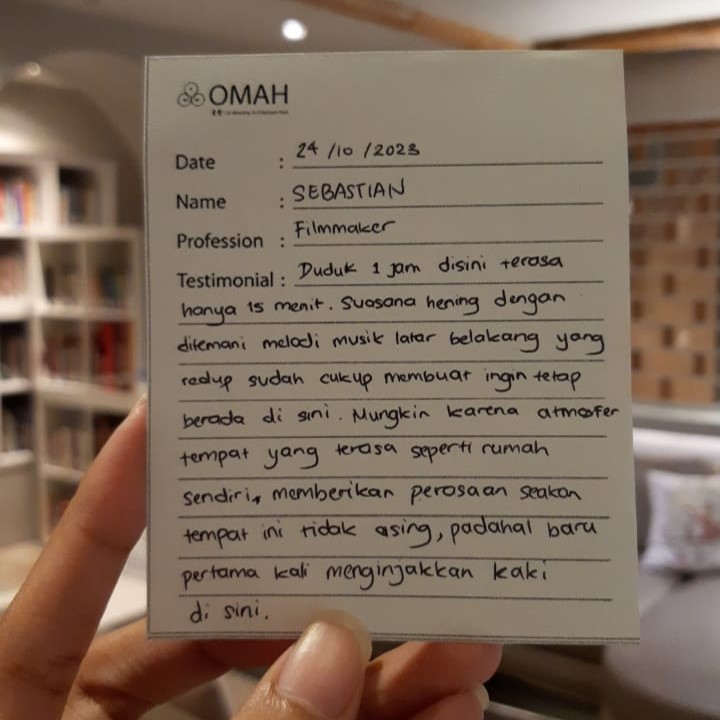 OMAH
Date : 24 /10 /2023
Name : SEBASTIAN
Profession : Filmmaker
Testimonial : Duduk 1 jam disini terasa
hanya 15 menit. Suasana hening dengan
ditemani melodi musik latar belakang yang
redup sudah cukup membuat ingin tetap
berada di sini. Mungkin karena atmosfer
tempat yang terasa seperti rumah
sendiri, memberikan perasaan seakan
tempat ini tidak asing, padahal baru
pertama kali menginjakkan kaki
di sini.